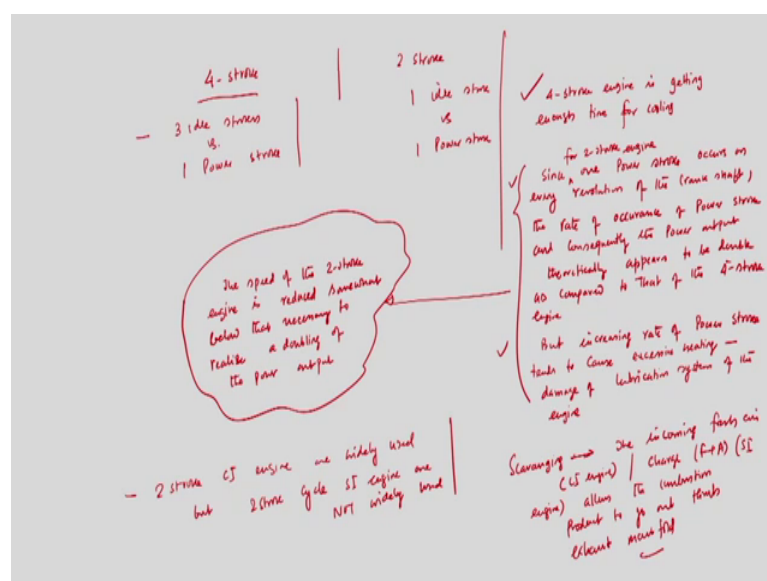 4-stroke
- 3 idle strokes
vs.
1 Power stroke
2 stroke
1 idle stroke
vs
1 Power stroke
✓ 4-stroke engine is getting
enough time for cooling
for 2-stroke engine
✓ Since ^ one Power stroke occurs on
every revolution of the crank shaft,
the rate of occurance of Power stroke
and consequently the Power output
theoretically appears to be double
as compared to that of the 4-stroke
engine
✓ But increasing rate of Power stroke
tends to cause excessive heating -
damage of lubrication system of the
engine
The speed of the 2-stroke
engine is reduced somewhat
below that necessary to
realise a doubling of
the power output
- 2 stroke CI engine are widely used
but 2 stroke cycle SI engine are
NOT widely used
Scavanging → The incoming fresh air
(CI engine) / charge (F+A) (SI
engine) allows the combustion
Product to go out
exhaust manifold